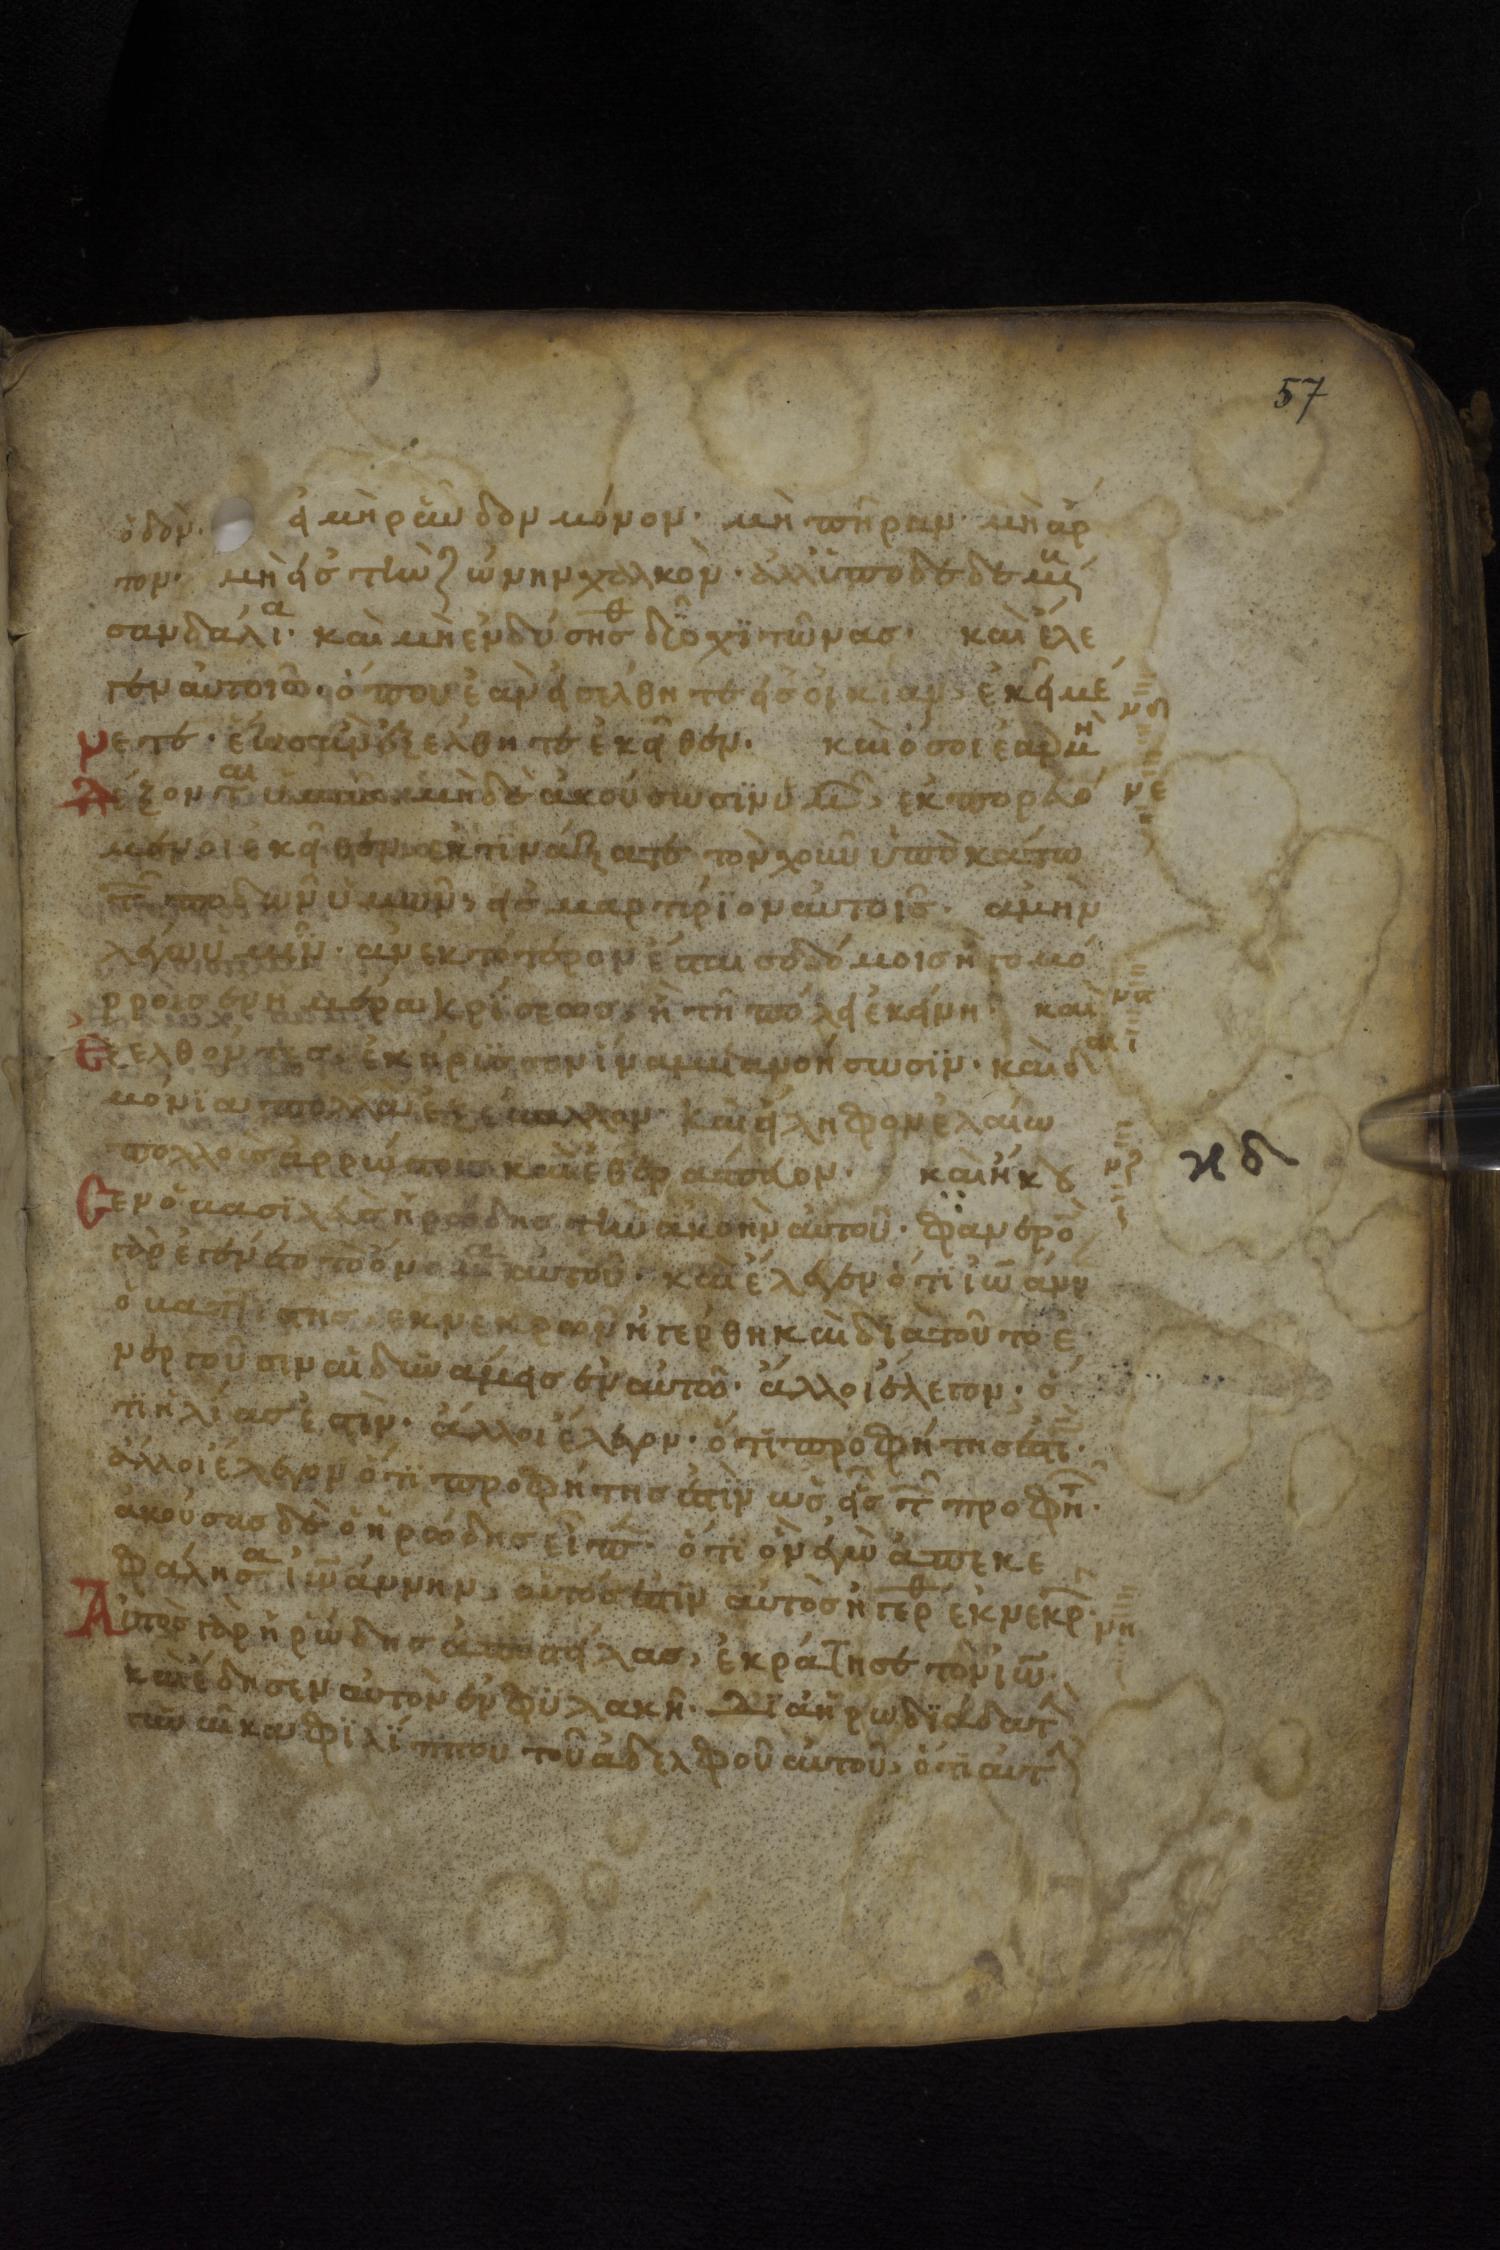 57
ὁδὸν· εἰ μὴ ράυδον μόνον· μὴ πήραν· μὴ ἄρ
τον· μὴ εἰς τὴν ζώνην χαλκὸν· ἀλλ' ὑποδεδεμ
σανδάλια· καὶ μὴ ἐνδύσησθ δύο χϊτῶνας· καὶ ἔλε
γεν αὐτοις· ὅπου ἐὰν εἰσέλθητε εἰς οἰκίαν, ἐκεῖ μέ
νετε· ἕως ἂν ἐξέλθητε ἐκεῖθεν· καὶ ὅσοι ἐαν μὴ
δέξονται ὑμᾶς μηδὲ ἀκούσωσϊν ὑμῶν, ἐκπορευό
μενοι ἐκεῖθεν ἐκτινάξατε τὸν χοῦν ὑποκάτω
τῶν ποδῶν ὑμῶν, εἰς μαρτύριον αὐτοις· ἀμὴν
λέγω ὑμῖν· ἀνεκτότερον ἔσται σοδόμοις ἢ γομό
ρροις ἐν ἡμέρα κρίσεως, ἢ τῆ πόλει ἐκείνη· καὶ
ἐξελθόντες, ἐκήρυσσον ἵνα μετανοήσωσϊν· καὶ δαι
μόνια πολλὰ ἐξέβαλλον· καὶ ἤλειφον ἐλαίω
πολλοὺς ἀρρώστους καὶ ἐθεράπευον· καὶ ἤκου
σεν ὁ βασιλεὺς ἡρώδης τὴν ἀκοὴν αὐτοῦ· φανερὸ
γὰρ ἐγένετο τὸ ὄνομα αὐτοῦ· καὶ ἔλεγεν ὅτι ἰωάνν
ὁ βαπτιστης, ἐκ νεκρων ἠγέρθη καὶ διατοῦτο ἐ
νεργοῦσιν αἱ δυνάμεις ἐν αὐτῶ· ἄλλοι ἔλεγον· ὅ
τι ἠλίας ἐστὶν· ἄλλοι ἔλεγον· ὅτι προφήτης ἐστι·
ἄλλοι ἔλεγον ὅτι προφήτης ἐστὶν ὡς εἷς τῶν προφη·
ἀκούσας δὲ ὁ ἡρώδης εἶπ· ὅτι ὃν ἐγὼ ἀπεκε
φάλησα ἰωάννην, οὗτος ἐστὶν αὐτὸς ἠγέρθ ἐκ νεκρ·
Αὐτὸς γὰρ ἡρώδης ἀποστείλας, ἐκράτησε τὸν ἰω
καὶ ἔδησεν αὐτὸν ἐν φϋλακῆ· διὰ ἡρωδϊάδα τ
τὴν γυναῖκα φϊλίππου τοῦ ἀδελφοῦ αὐτοῦ, ὅτι αὐτ
νε
να
νζ
κδ
νη